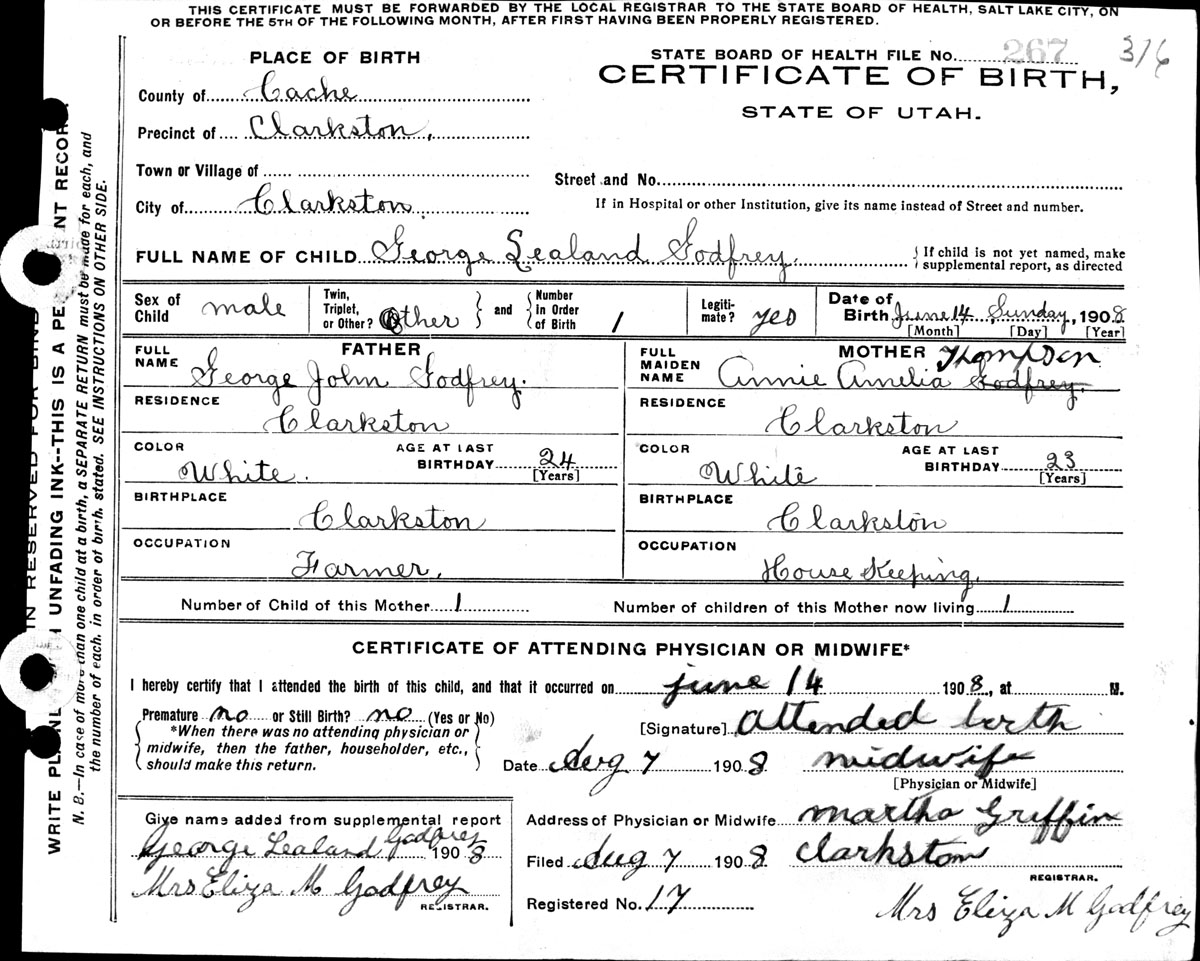 THIS CERTIFICATE MUST BE FORWARDED BY THE LOCAL REGISTRAR TO THE STATE BOARD OF HEALTH, SALT LAKE CITY, ON
OR BEFORE THE 5TH OF THE FOLLOWING MONTH, AFTER FIRST HAVING BEEN PROPERLY REGISTERED.
PLACE OF BIRTH
STATE BOARD OF HEALTH FILE No. 267 376
CERTIFICATE OF BIRTH,
STATE OF UTAH.
County of Cache
Precinct of Clarkston,
Town or Village of
Street and No.
City of Clarkston.
If in Hospital or other Institution, give its name instead of Street and number.
FULL NAME OF CHILD George Lealand Godfrey.
{ If child is not yet named, make
supplemental report, as directed
Sex of Child male
Twin, Triplet, or Other? Other } and { Number in Order of Birth 1
Legitimate? yes
Date of Birth June 14 Sunday, 1908
[Month] [Day] [Year]
FATHER
FULL NAME George John Godfrey.
RESIDENCE
Clarkston
COLOR White.
AGE AT LAST BIRTHDAY 24
[Years]
BIRTHPLACE
Clarkston
OCCUPATION
Farmer,
MOTHER Thompson
FULL MAIDEN NAME Annie Amelia Godfrey.
RESIDENCE
Clarkston
COLOR White
AGE AT LAST BIRTHDAY 23
[Years]
BIRTHPLACE
Clarkston
OCCUPATION
House Keeping.
Number of Child of this Mother 1
Number of children of this Mother now living 1
CERTIFICATE OF ATTENDING PHYSICIAN OR MIDWIFE*
I hereby certify that I attended the birth of this child, and that it occurred on june 14 1908, at M.
Premature no or Still Birth? no (Yes or No)
*When there was no attending physician or
midwife, then the father, householder, etc.,
should make this return.
[Signature] attended birth
Date Aug 7 1908 midwife
[Physician or Midwife]
Give name added from supplemental report
George Lealand Godfrey 1908
Mrs Eliza M Godfrey
REGISTRAR.
Address of Physician or Midwife martha Griffin
Filed Aug 7 1908 clarkston
REGISTRAR.
Registered No. 17
Mrs Eliza M Godfrey
IN RESERVED FOR BIND
WRITE PLAINL H UNFADING INK--THIS IS A PE NT RECORD.
N. B.—In case of more than one child at a birth, a SEPARATE RETURN must be made for each, and
the number of each, in order of birth, stated. SEE INSTRUCTIONS ON OTHER SIDE.